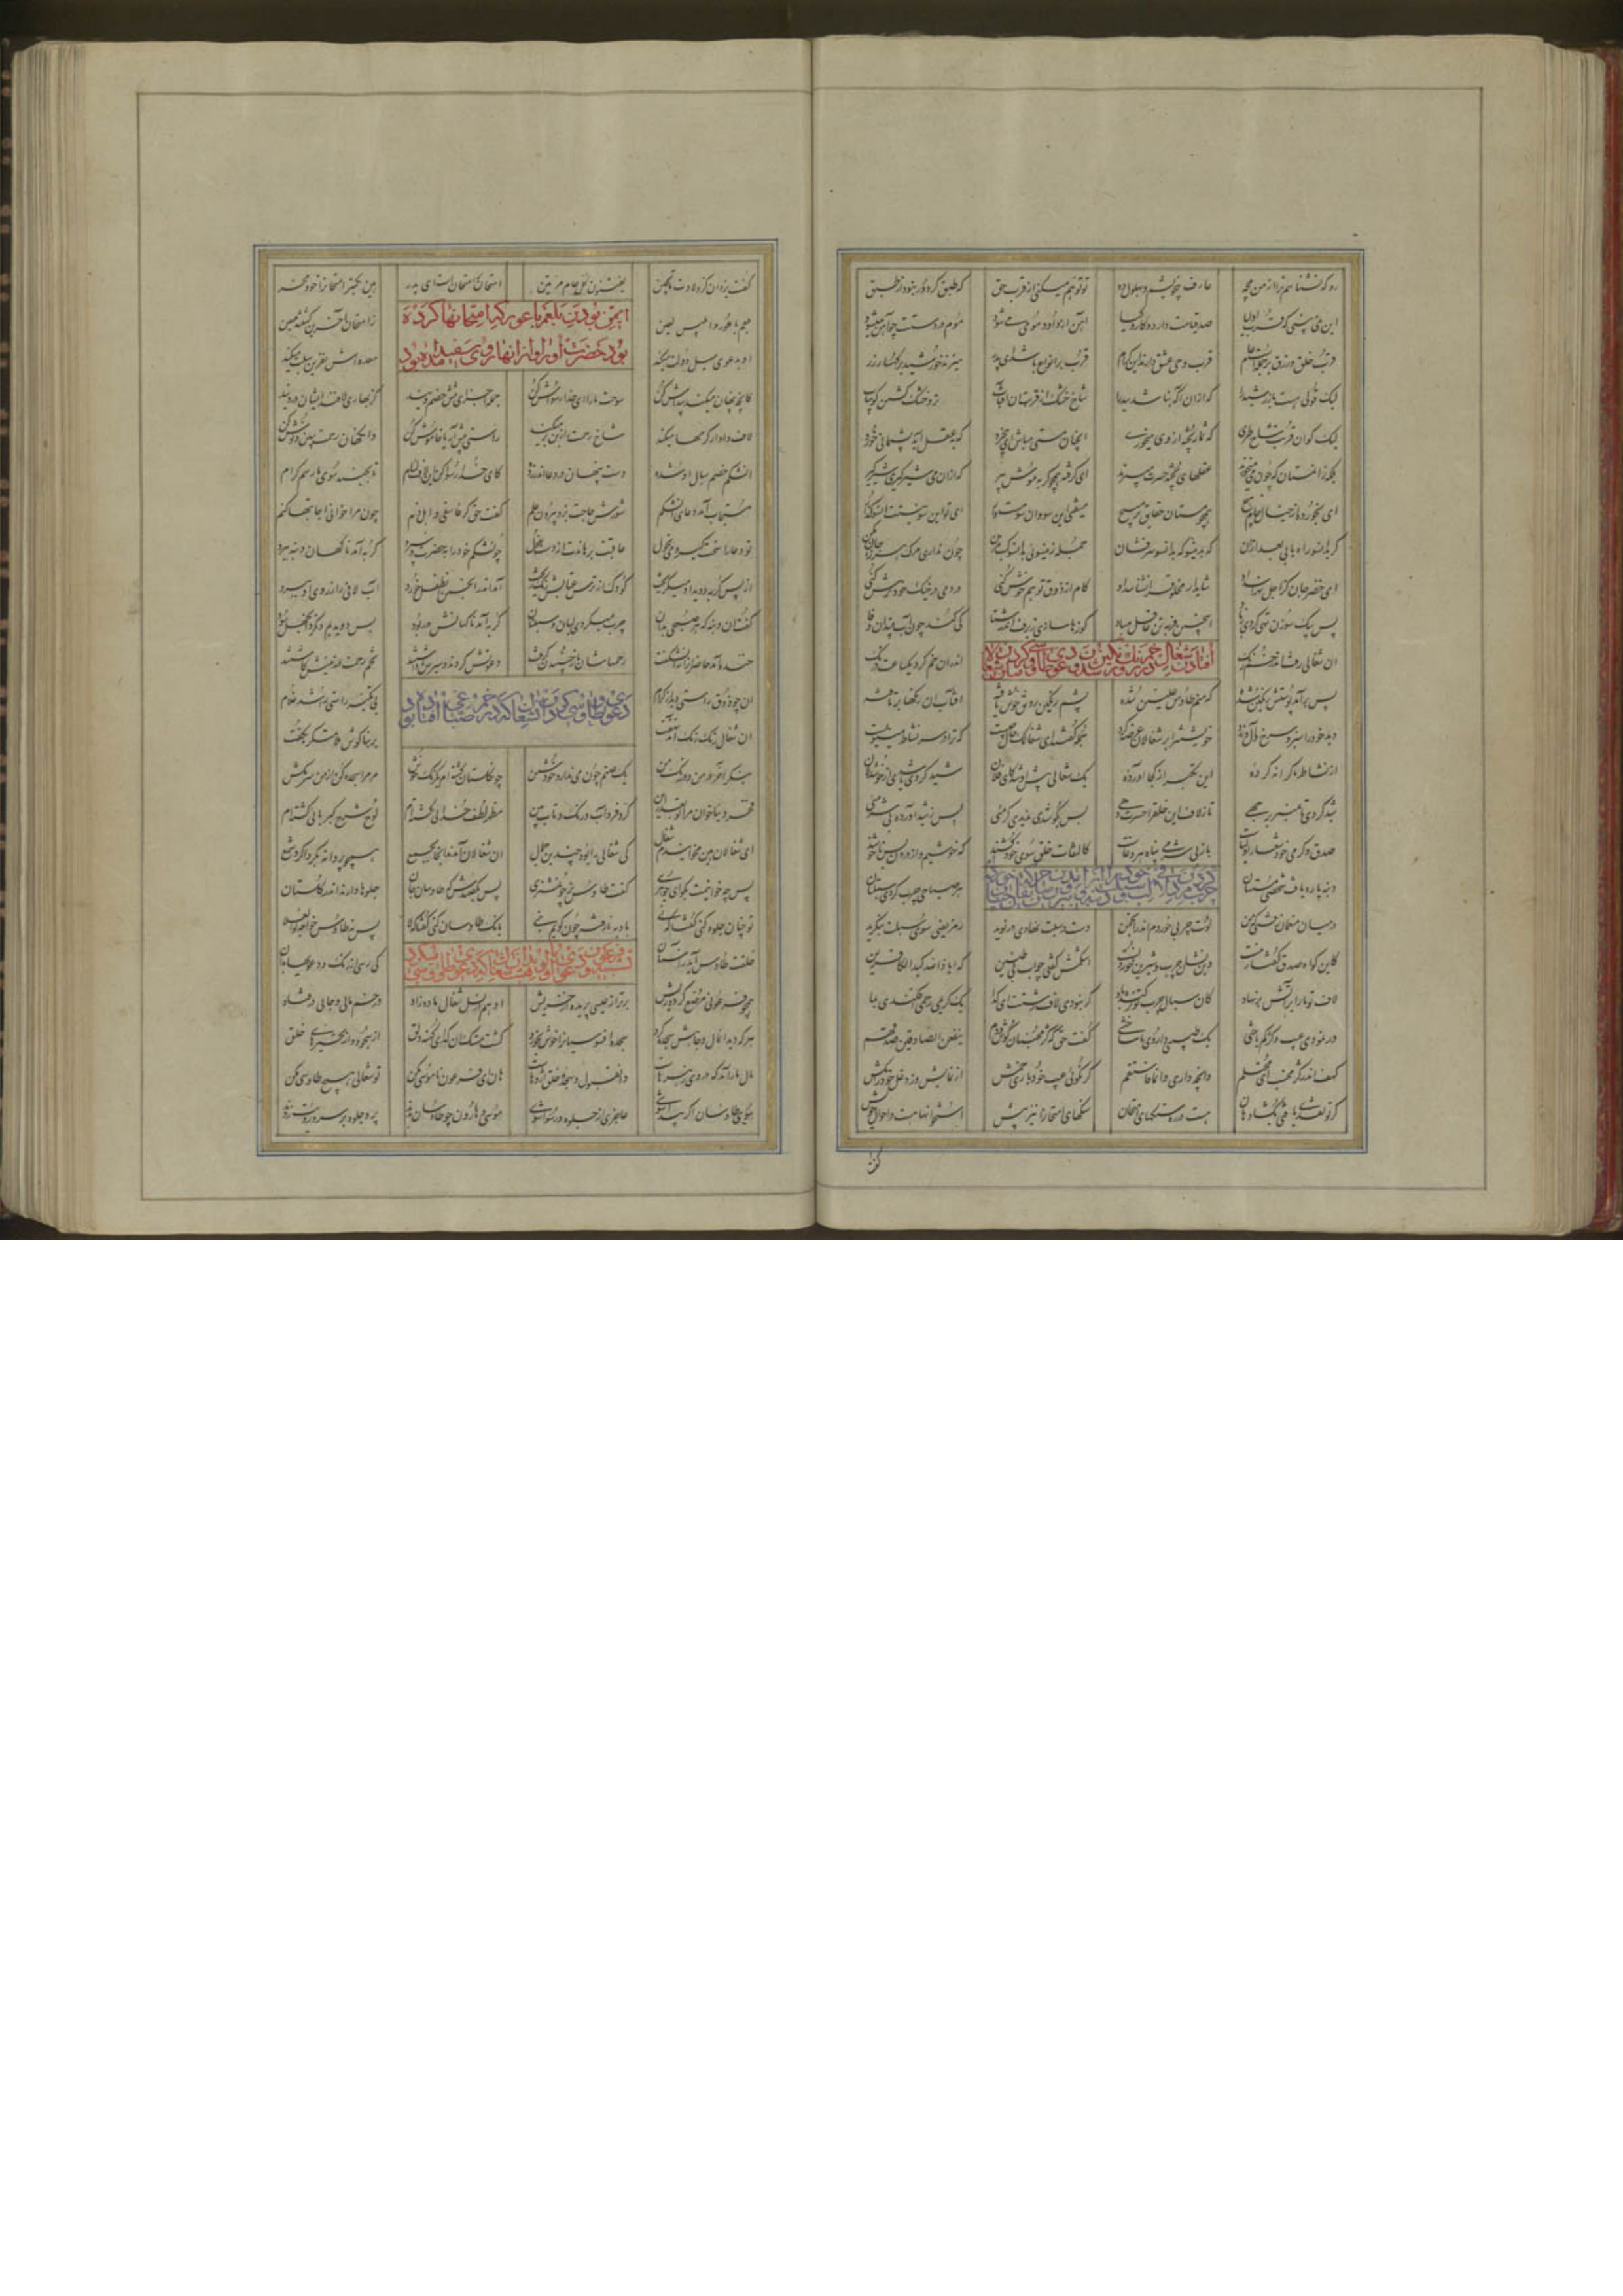 رو که نشناسم ترا از من بجه عارف خویشم و بهلول ده تو توهم میکنی از قرب حق که طبق کر دور نبود از طبق
این نمی بینی که قرب اولیا صد کرامت دارد و کار و کیا آهن از داود مومی میشود موم در دستت چو آهن میشود
قرب خلق و رزق بر جمله است عام قرب وحی عشق دارند این کرام قرب بر انواع باشد ای پدر میزند خورشید بر کهسار و زر
لیک قربی هست با زر شید را که از ان آگه نباشد بید را شاخ خشک و تر قریب آفتاب
لیک کو آن قربت شاخ طری که ثمار پخته از وی میخوری آنچنان مستی مباش ای بیخرد که بعقل آید پشیمانی خورد
بلکه زان مستان که چون می میخورند عقلهای پخته حسرت میبرند ای گرفته همچو گربه موش پیر گر از ان می شیرگیری شیر گیر
ای بخورده از خیال جام هیچ همچو مستان حقایق بر مپیچ میفتی این سو و آن سو مست وار ای تو این سو نیستت زان سو گذار
گر بدانسو راه یابی بعد از ان که بدینسو گه بدانسو سر فشان جمله زینسویی بدانسو کپ مزن چون نداری مرگ هرزه جان مکن
آن خضر جان کز اجل نهراسد او شاید ار مخلوق را نشناسد او کام از ذوق توهم خوش کنی در دمی در خیک خود پرش کنی
پس بیک سوزن تهی گردی ز باد این چنین فربه تن عاقل مباد کوزها سازی ز برف اندر شتا کی کند چون آب بیند آن وفا
افتادن شغال در خم رنگ و رنگین شدن و دعوی طاوسی کردن میان شغالان
آن شغالی رفت اندر خم رنگ اندر آن خم کرد یکساعت درنگ
پس بر آمد پوستش رنگین شده که منم طاوس علیین شده پشم رنگین رونق خوش یافته آفتاب آن رنگها بر تافته
دید خود را سبز و سرخ و بور و زرد خویشتن را بر شغالان عرضه کرد جمله گفتند ای شغالک حال چیست که ترا در سر نشاطی ملتویست
از نشاط از ما کرانه کردۀ این تکبر از کجا آوردۀ یک شغالی پیش او شد کای فلان شید کردی یا شدی از خوشدلان
شید کردی تا بمنبر بر جهی تا ز لاف این خلق را حسرت دهی بس بکوشیدی ندیدی گرمیی پس ز شید آوردۀ بی شرمیی
صدق و گرمی خود شعار اولیاست باز بی شرمی پناه هر دغاست کالتفات خلق سوی خود کشند که خوشیم و از درون بس ناخوشند
چرب کردن مرد لافی لب و سبلت خود را
دنبه پاره یافت شخصی مستهان هر صباحی چرب کردی سبلتان
در میان منعمان رفتی که من لوت چربی خورده‌ام در انجمن دست بر سبلت نهادی در نوید رمز یعنی سوی سبلت بنگرید
کاین گواه صدق گفتار منست وین نشان چرب و شیرین خوردنست اشکمش گفتی جواب بی طنین که اباد الله کید الکاذبین
لاف تو ما را بر آتش بر نهاد کان سبال چرب تو بر کنده باد گر نبودی لاف زشتت ای گدا یک کریمی رحم افکندی بما
ور نمودی عیب و کژ کم باختی یک طبیبی داروی ما ساختی گفت حق که کژ مجنبان گوش و دم ینفعن الصادقین صدقهم
کهف اندر کژ مخسب ای محتلم آنچه داری وانما و فاستقم گر نگویی عیب خود باری خمش از نمایش وز دغل خود را مکش
گر تو نقدی یافتی مگشا دهان هست در ره سنگهای امتحان سنگهای امتحان را نیز پیش امتحانها هست در احوال خویش
گفت یزدان کز ولادت تا بحین یفتنون کل عام مرتین امتحان بر امتحانست ای پدر هین بکمتر امتحان خود را مخر
ایمن بودن بلعم باعور که امتحانها کرده
بلعم باعور و ابلیس لعین ز امتحان آخرین گشته مهین
بود حضرت او را و از انها روی سفید آمده بود
او بدعوی میل دولت میکند معده‌اش نفرین سبلت میکند
کانچه پنهان میکند پیداش کن سوخت ما را ای خدا رسواش کن جمله اجزای تنش خصم ویند کز بهاری لافد ایشان در دیند
لاف وا داد کرمها میکند شاخ رحمت را ز بن بر میکند راستی پیش آر یا خاموش کن وانگهان رحمت ببین و نوش کن
آن شکم خصم سبال او شده دست پنهان در دعا اندر زده کای خدا رسوا کن این لاف لئام تا بجنبد سوی ما رحم کرام
مستجاب آمد دعای آن شکم شورش حاجت بزد بیرون علم گفت حق گر فاسقی و اهل صنم چون مرا خوانی اجابتها کنم
تو دعا را سخت گیر و می شخول عاقبت برهاندت از دست غول چون شکم خود را بحضرت در سپرد گربه آمد ناگهان دنبه ببرد
از پس گربه دویدند او گریخت کودک از ترس عتابش رنگ ریخت آمد اندر انجمن آن طفل خرد آب روی مرد لافی را ببرد
گفت آن دنبه که هر صبحی بدان چرب میکردی لبان و سبلتان گربه آمد ناگهانش در ربود پس دویدیم و نکرد آن جهد سود
خنده آمد حاضران را از شگفت رحمهاشان باز جنبیدن گرفت دعوتش کردند و سیرش داشتند تخم رحمت در زمینش کاشتند
او چو ذوق راستی دید از کرام بی تکبر راستی را شد غلام
دعوی طاوسی کردن آن شغال که در خم رنگ صباغ افتاده بود
آن شغال رنگ رنگ آمد نهفت بر بناگوش ملامتگر بگفت
بنگر آخر در من و در رنگ من یک صنم چون من ندارد خود شمن چون گلستان گشته‌ام صد رنگ و خوش مر مرا سجده کن از من سر مکش
کر و فر و آب و رنگ و تاب بین فخر دنیا خوان مرا و رکن دین مظهر لطف خدایی گشته‌ام لوح شرح کبریایی گشته‌ام
ای شغالان هین مخوانیدم شغال کی شغالی را بود چندین جمال آن شغالان آمدند آنجا بجمع همچو پروانه بگرداگرد شمع
پس چه خوانیمت بگو ای جوهری گفت طاوس نر چون مشتری پس بگفتندش که طاوسان جان جلوها دارند اندر گلستان
تو چنان جلوه کنی گفتا که نی بادیه نارفته چون گویم منی بانگ طاوسان کنی گفتا که لا پس نۀ طاوس خواجه بوالعلا
خلعت طاوس آید ز آسمان کی رسی از رنگ و دعویها بدان
تشبیه فرعون و دعوی الوهیت او بدان شغال که دعوی طاوسی میکرد
همچو فرعونی مرصع کرده ریش برتر از عیسی پریده از خریش او هم از نسل شغال ماده زاد در خم مالی و جاهی در فتاد
هر که دید آن مال و جاهش سجده کرد سجدۀ افسوسیان را او بخورد گشت مستک آن گدای ژنده دلق از سجود و از تحیرهای خلق
مال مار آمد که در وی زهرهاست وان قبول و سجدۀ خلق اژدهاست های ای فرعون ناموسی مکن تو شغالی هیچ طاوسی مکن
سوی طاوسان اگر پیدا شوی عاجزی از جلوه و رسوا شوی موسی و هارون چو طاوسان بدند پر جلوه بر سر و رویت زدند